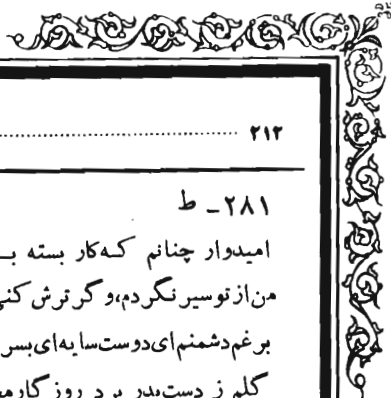 ۲۱۲
۲۸۱ - ط
امیدوار چنانم که کار بسته بـ
من از تو سیر نگردم، و گر ترش کنی
برغم دشمنم ای دوست سایه‌ای بسر
گلم ز دست بدر برد روزگار